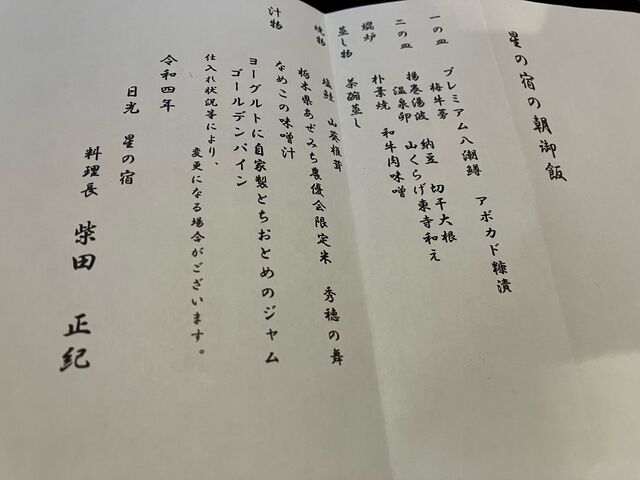 星の宿の朝御飯
一の皿 プレミアム八潮鱒 アボカド糠漬
梅牛蒡 納豆 切干大根
二の皿 揚巻湯波 山くらげ東寺和え
温泉卵
焜炉 朴葉焼 和牛肉味噌
蒸し物 茶碗蒸し
焼物 塩鮭 山葵椎茸
栃木県あぜみち農優会限定米 秀穂の舞
汁物 なめこの味噌汁
ヨーグルトに自家製とちおとめのジャム
ゴールデンパイン
仕入れ状況等により、変更になる場合がございます。
令和四年
日光 星の宿
料理長 柴田 正紀